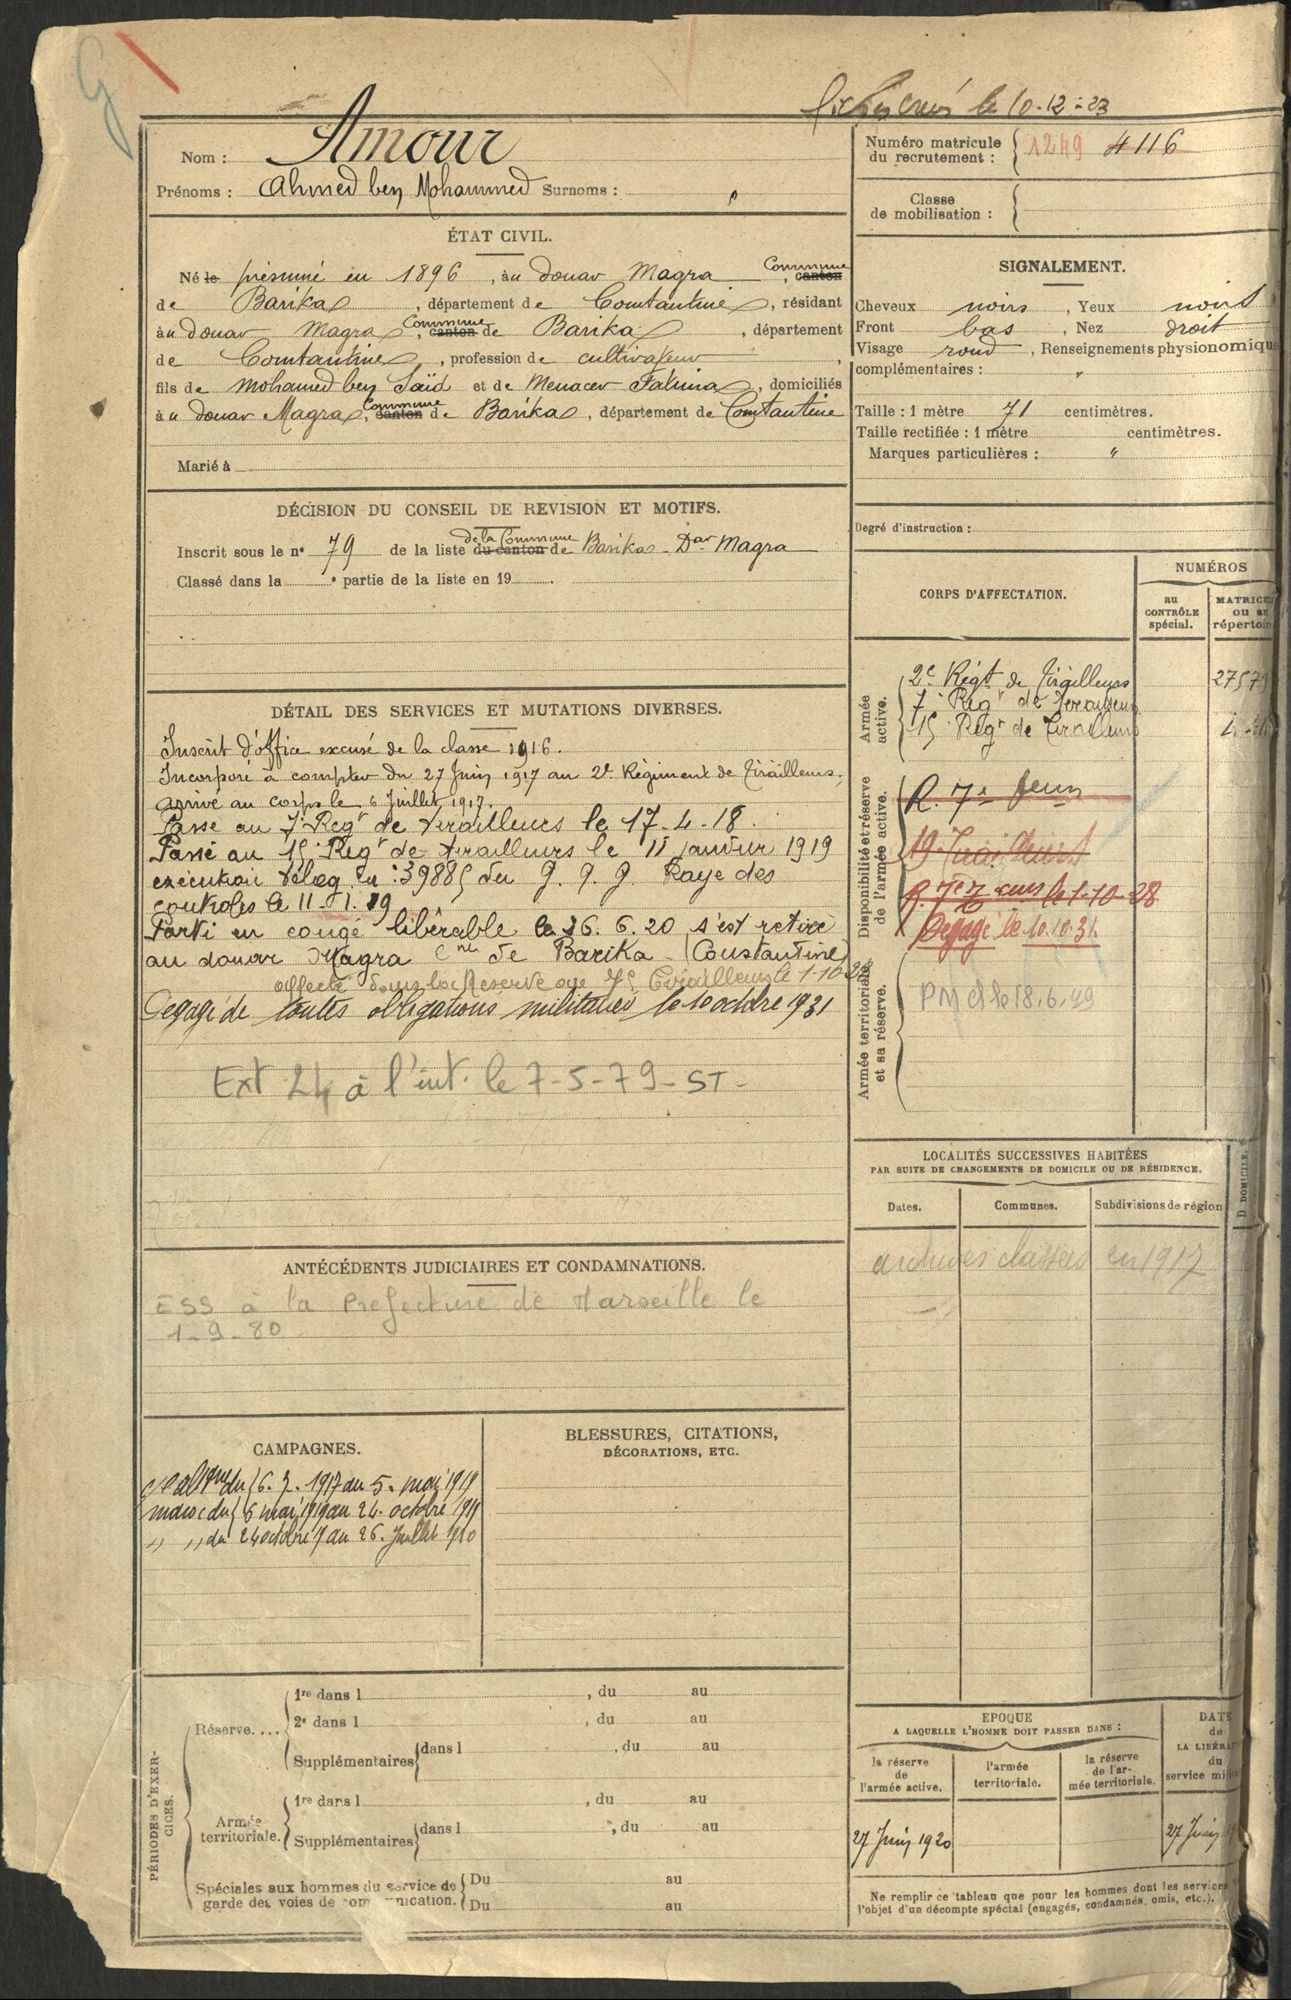 le 10-12-23
Nom : Amour
Prénoms : Ahmed ben Mohammed Surnoms : "
ÉTAT CIVIL.
Né le présumé en 1896, au douar Magra, Commune canton
de Barika, département de Constantine, résidant
au douar Magra, Commune canton de Barika, département
de Constantine, profession de cultivateur,
fils de Mohamed ben Saïd et de Menacer Fatima, domiciliés
au douar Magra, Commune canton de Barika, département de Constantine
Marié à
DÉCISION DU CONSEIL DE REVISION ET MOTIFS.
Inscrit sous le n° 79 de la liste de la Commune du canton de Barika - Dar Magra
Classé dans la e partie de la liste en 19 .
DÉTAIL DES SERVICES ET MUTATIONS DIVERSES.
Inscrit d'office excusé de la classe 1916.
Incorporé à compter du 27 Juin 1917 au 2e Régiment de Tirailleurs,
arrivé au corps le 6 Juillet 1917.
Passé au 7e Regt de Tirailleurs le 17-4-18.
Passé au 15e Regt de tirailleurs le 11 janvier 1919
execution teleg n: 39885 du G. Q. G. Raye des
controles le 11-1.19
Parti en congé libérable le 26.6.20 s'est retiré
au douar Magra Cne de Barika - (Constantine)
affecté dans la Reserve au 7e Tirailleurs le 1-10-28
Degagé de toutes obligations militaires le 10 octobre 1931
Ext 24 à l'int. le 7-5-79 - ST -
ANTÉCÉDENTS JUDICIAIRES ET CONDAMNATIONS.
ESS à la Prefecture de Marseille le
1-9-80
CAMPAGNES.
du 6.7.1917 au 5. mai 1919
maroc du 6 mai 1919 au 24 octobre 1919
" " du 24 octobre 19 au 26. Juillet 1920
BLESSURES, CITATIONS,
DÉCORATIONS, ETC.
PÉRIODES D'EXERCICES.
Réserve....
1re dans l , du au
2e dans l , du au
Supplémentaires dans l , du au
Armée territoriale.
1re dans l , du au
Supplémentaires dans l , du au
Spéciales aux hommes du service de
garde des voies de communication.
Du au
Du au
Numéro matricule
du recrutement : 1249 4116
Classe
de mobilisation :
SIGNALEMENT.
Cheveux noirs, Yeux noirs
Front bas, Nez droit
Visage rond, Renseignements physionomiqu
complémentaires : "
Taille : 1 mètre 71 centimètres.
Taille rectifiée : 1 mètre centimètres.
Marques particulières : "
Degré d'instruction :
CORPS D'AFFECTATION.
NUMÉROS
au
CONTRÔLE
spécial.
MATRICU
ou au
répertoir
Armée
active.
2e Régt de Tirailleurs 27579
7e Regt de Tirailleurs
15e Regt de Tirailleurs
Disponibilité et réserve
de l'armée active.
R. 7e
19 Tirailleurs
R. 7e le 1-10-28
Degagé le 10.10.31
Armée territoriale
et sa réserve.
le 18.6.49
LOCALITÉS SUCCESSIVES HABITÉES
PAR SUITE DE CHANGEMENTS DE DOMICILE OU DE RÉSIDENCE.
Dates.
Communes.
Subdivisions de région
D DOMICILE.
archives classées en 1917
EPOQUE
A LAQUELLE L'HOMME DOIT PASSER DANS :
la réserve
de
l'armée active.
l'armée
territoriale.
la réserve
de l'ar-
mée territoriale.
DATE
de
LA LIBÉRA
du
service mi
27 Juin 1920
27 Juin
Ne remplir ce tableau que pour les hommes dont les services
l'objet d'un décompte spécial (engagés, condamnés, omis, etc.).